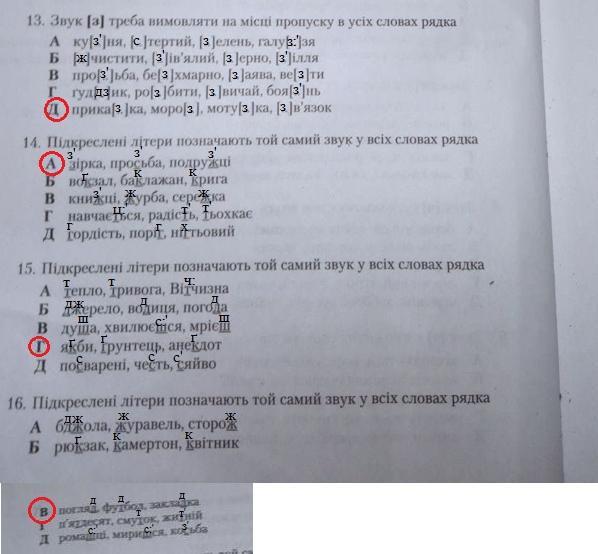 13. Звук [з] треба вимовляти на місці пропуску в усіх словах рядка
А ку[з']ня, [с]тертий, [з]елень, галу[з':]зя
Б [ж]чистити, [з']ів'ялий, [з]ерно, [з']ілля
В про[з']ьба, бе[з]хмарно, [з]аява, ве[з]ти
Г гуд[дз]ик, ро[з]бити, [з]вичай, боя[з']нь
Д прика[з]ка, моро[з], моту[з]ка, [з]в'язок
14. Підкреслені літери позначають той самий звук у всіх словах рядка
з' з' з'
А зірка, просьба, подружці
ґ к к
Б вокзал, баклажан, крига
з' ж ж
В книжці, журба, сережка
ц' т' т'
Г навчається, радість, тьохкає
г г х
Д гордість, поріг, нігтьовий
15. Підкреслені літери позначають той самий звук у всіх словах рядка
т т ч:
А тепло, тривога, Вітчизна
дж д д
Б джерело, водиця, погода
ш с:' ш
В душа, хвилюєшся, мрієш
ґ ґ ґ
Г якби, ґрунтець, анекдот
с с' с'
Д посварені, честь, сяйво
16. Підкреслені літери позначають той самий звук у всіх словах рядка
дж ж ж
А бджола, журавель, сторож
ґ к к
Б рюкзак, камертон, квітник
д д д
В погляд, футбол, закладка
т т
Г п'ятдесят, смуток, житній
с:' з'
Д ромашці, миришся, косьба